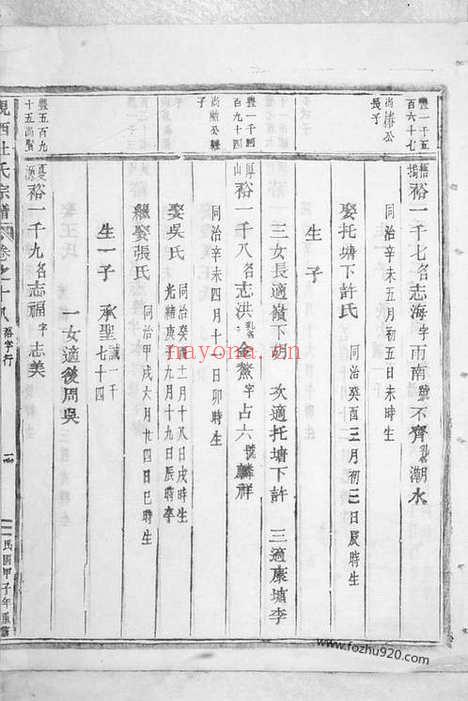 豊一千五百六十七
尚㴋公長子
梧塢 裕一千七 名志海 字雨南 號丕齊 乳名潮水
同治辛未五月初五日未時生
娶托塘下許氏 同治癸酉三月初三日辰時生
生 子
三女長適嶺下胡 次適托塘下許 三適康塘李
豊一千四百九十四
子
厚山 裕一千八 名志洪 乳名金鰲 字占六 號麟祥
同治辛未四月十八日卯時生
娶吳氏 同治癸酉十二月十八日戌時生
光緒庚子九月十九日辰時卒
繼娶張氏 同治甲戌六月廿四日巳時生
生一子 承聖 誠一千七十四
一女適後周吳
豊五百九十五尚賢
裕一千九 名志福 字志美
峴西杜氏宗譜 卷之十八 裕字行
民國甲子年重修
nayona.cn
www.fozhu920.com